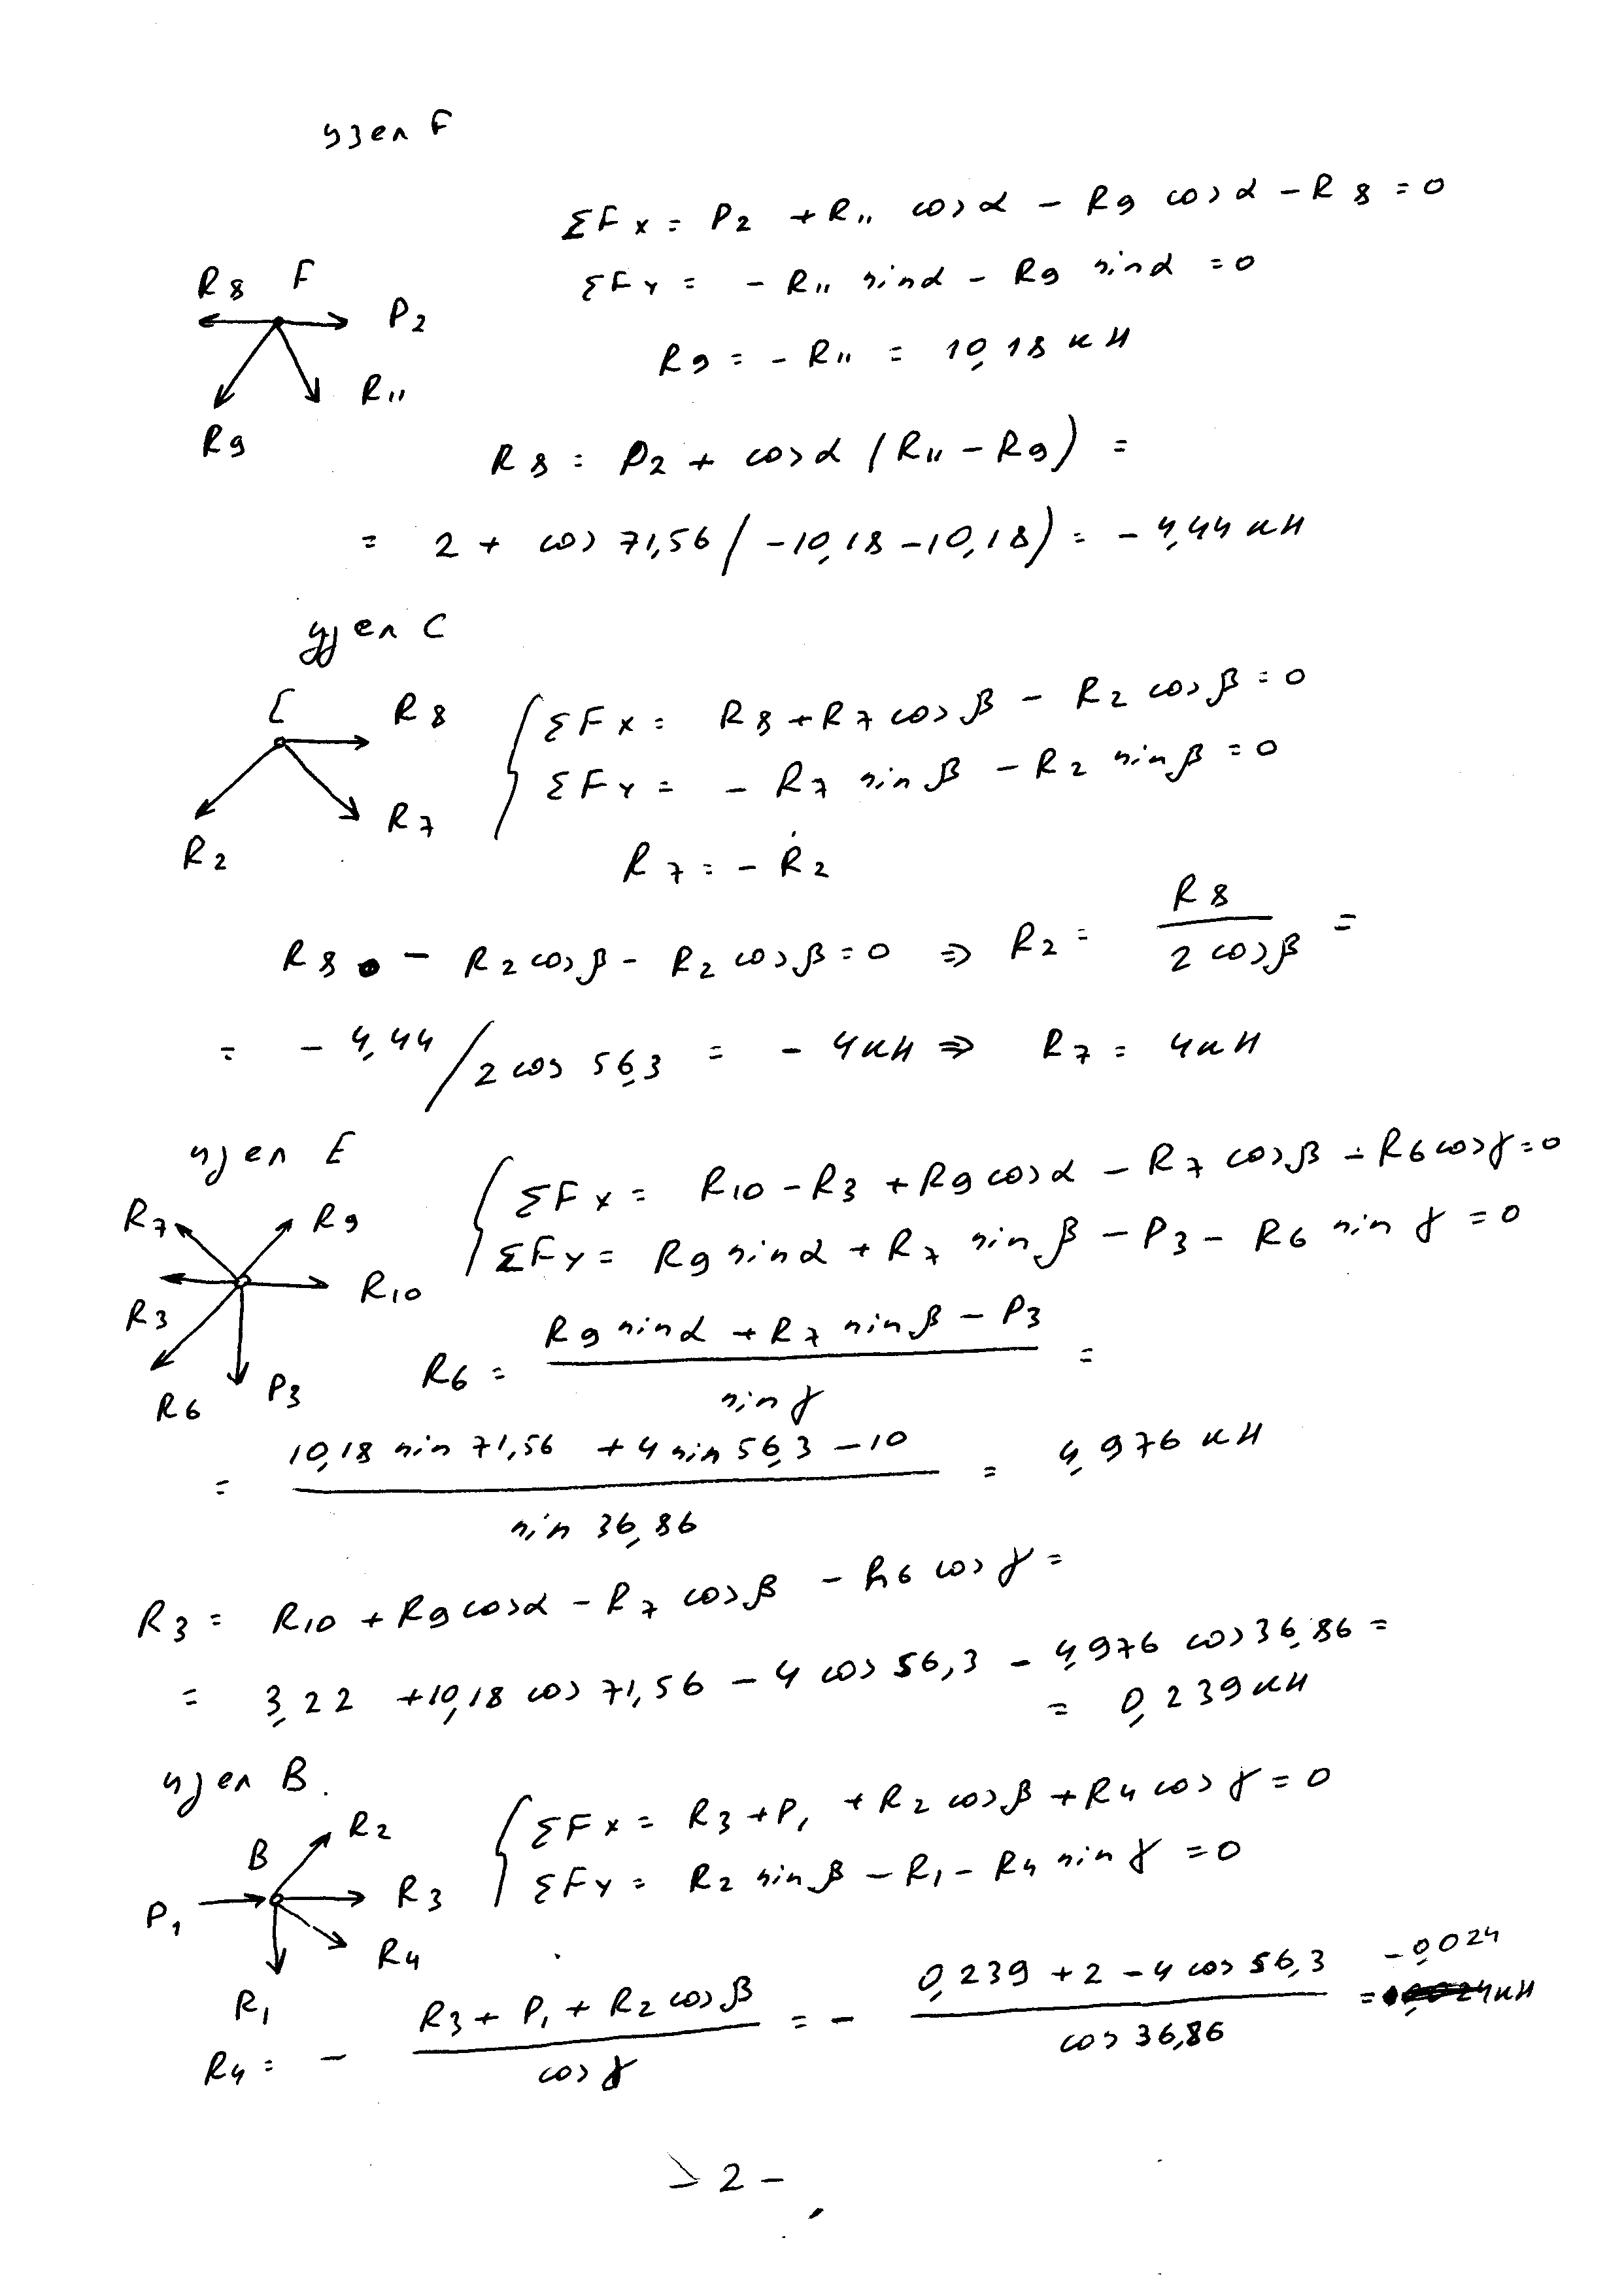 узел F
ΣFx = P2 + R11 cosα − R9 cosα − R8 = 0
ΣFy = − R11 sinα − R9 sinα = 0
R8 F
P2
R9 = − R11 = 10,18 кН
R11
R9
R8 = P2 + cosα (R11 − R9) =
= 2 + cos 71,56 (−10,18 −10,18) = − 4,44 кН
узел C
C R8
ΣFx = R8 + R7 cosβ − R2 cosβ = 0
ΣFy = − R7 sinβ − R2 sinβ = 0
R7
R2
R7 = − R2
R8 − R2 cosβ − R2 cosβ = 0 ⇒ R2 = R8 / 2 cosβ =
= − 4,44 / 2 cos 56,3 = − 4кН ⇒ R7 = 4кН
узел E
ΣFx = R10 − R3 + R9 cosα − R7 cosβ − R6 cosγ = 0
R7 R9
ΣFy = R9 sinα + R7 sinβ − P3 − R6 sinγ = 0
R10
R3
R6 P3
R6 = R9 sinα + R7 sinβ − P3 / sinγ =
= 10,18 sin 71,56 + 4 sin 56,3 − 10 / sin 36,86 = 4,976 кН
R3 = R10 + R9 cosα − R7 cosβ − R6 cosγ =
= 3,22 + 10,18 cos 71,56 − 4 cos 56,3 − 4,976 cos 36,86 =
= 0,239 кН
узел B.
R2
B
ΣFx = R3 + P1 + R2 cosβ + R4 cosγ = 0
ΣFy = R2 sinβ − R1 − R4 sinγ = 0
P1 R3
R4
R1
R4 = − R3 + P1 + R2 cosβ / cosγ = − 0,239 + 2 − 4 cos 56,3 / cos 36,86 = −0,024 кН
− 2 −